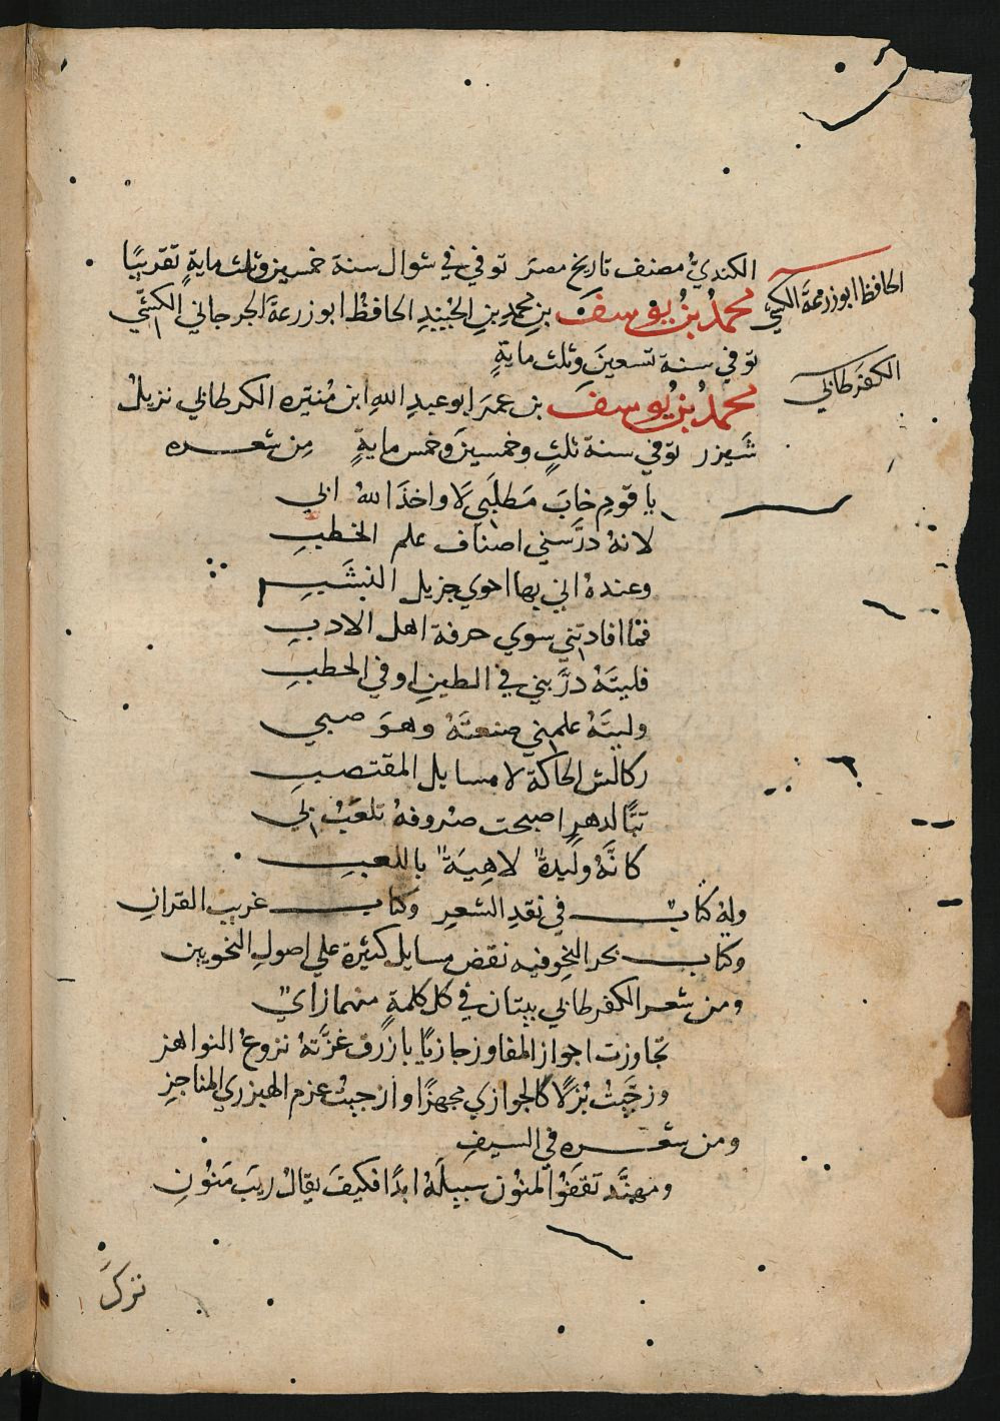 الكنديُّ مصنف تاريخ مصرَ توفي في شوال سنة خمسين وثلث مايةٍ تقريبًا
الحافظ ابوزرعة الكشي
محمدُ بنُ يوسفَ بنِ محمدِ بنِ الجُنيدِ الحافظُ ابوزرعةَ الجرجاني الكشّي
توفي سنة تسعينَ وثلث مايةٍ
الكفَرطابي
محمدُ بنُ يُوسفَ بن عمرَ ابو عبد اللهِ ابن مُنتيره الكرطابي نزيلُ
شَيزر توفي سنة ثلثٍ وخمسينَ وخمس مايةٍ من شعره
يا قومِ خابَ مَطلَبي لَا واخذَ اللهُ ابي
لانهُ درَّسَني اصناف علم الخطبِ
وعندهُ اني بها احوي جزيل النشَبِ
فما افادتني سوي حرفة اهل الادبِ
فليتَهُ درَّبني في الطينِ او في الحطبِ
وليتَهُ علمني صنعتَهُ وهوَ صبي
ركالش الحاكة لا مسايل المقتضبِ
تبًّا لدهرٍ اصبحت صُروفهُ تلعَبُ بي
كانَّهُ وليدةٌ لاهِيَةٌ باللعبِ
وله كتاب في نقدِ الشعرِ وكتاب غريب القرانِ
وكتاب بحر النحوِ فيه نقض مسايل كثيرة علي اصولِ النحويين
ومن شعر الكفرطابي بيتان في كل كلمةٍ منهما زايٌ
تجاوزت اجواز المفاوز جازيًا بازرق غزَّتهُ نزوعُ النواهز
وزجَّيتُ بُزلًا كالجوازي مجهزًا وازجيتُ عزم الهبزري المناجزِ
ومن شعره في السيفِ
ومهنَّدٍ تقفُوا المنُون سبيلَهُ ابدًا فكيفَ يقالُ ريبَ مَنُونِ
نزكَ